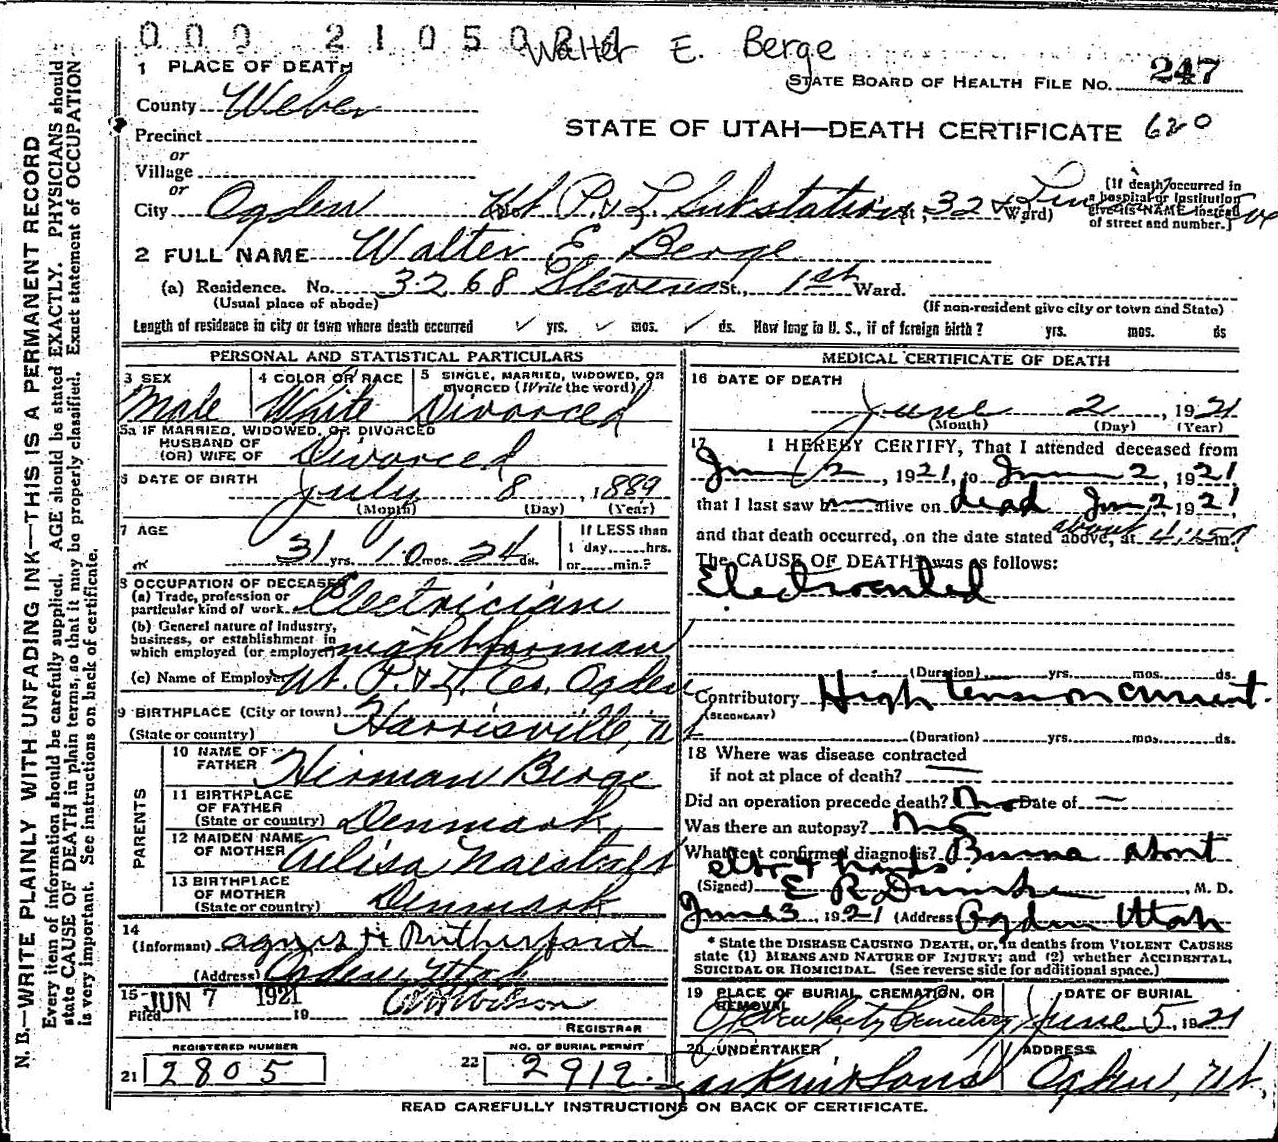 000 21050
Walter E. Berge
1 PLACE OF DEATH
STATE BOARD OF HEALTH FILE NO. 247
County Weber
STATE OF UTAH—DEATH CERTIFICATE 620
Precinct
or
Village
or
City Ogden Ut P. & L. Substation St; 32 & Ward)
(If death occurred in
a hospital or institution
give its NAME instead
of street and number.)
2 FULL NAME Walter E Berge
(a) Residence. No. 3268 Stevens St., 1st Ward.
(Usual place of abode)
(If non-resident give city or town and State)
Length of residence in city or town where death occurred yrs. mos. ds. How long in U. S., if of foreign birth? yrs. mos. ds
PERSONAL AND STATISTICAL PARTICULARS
3 SEX
Male
4 COLOR OR RACE
White
5 SINGLE, MARRIED, WIDOWED, OR
DIVORCED (Write the word)
Divorced
5a IF MARRIED, WIDOWED, OR DIVORCED
HUSBAND OF
(OR) WIFE OF Divorced
6 DATE OF BIRTH July 8, 1889
(Month) (Day) (Year)
7 AGE
31 yrs. 10 mos. 24 ds.
If LESS than
1 day,......hrs.
or......min.?
8 OCCUPATION OF DECEASED
(a) Trade, profession or
particular kind of work Electrician
(b) General nature of industry,
business, or establishment in
which employed (or employer) night forman
(c) Name of Employer Ut. P. & L. Co. Ogden
9 BIRTHPLACE (City or town) Harrisville, Ut
(State or country)
PARENTS
10 NAME OF
FATHER Hirman Berge
11 BIRTHPLACE
OF FATHER
(State or country) Denmark
12 MAIDEN NAME
OF MOTHER
13 BIRTHPLACE
OF MOTHER
(State or country) Denmark
14
(Informant) Agnes H Rutherford
(Address) Ogden Utah
15
Filed JUN 7 1921 19 Wilson
REGISTRAR
REGISTERED NUMBER
21 2805
NO. OF BURIAL PERMIT
22 2912
MEDICAL CERTIFICATE OF DEATH
16 DATE OF DEATH
June 2, 1921
(Month) (Day) (Year)
17 I HEREBY CERTIFY, That I attended deceased from
June 2, 1921, to June 2, 1921
that I last saw h alive on dead Jun 2 1921
and that death occurred, on the date stated above, at about 4:15 m.
The CAUSE OF DEATH was as follows:
Electrocuted
(Duration) yrs. mos. ds.
Contributory High tension current.
(SECONDARY)
(Duration) yrs. mos. ds.
18 Where was disease contracted
if not at place of death? —
Did an operation precede death? No Date of —
Was there an autopsy? No
What test confirmed diagnosis? Burns about
elbow & hands.
(Signed) E R , M. D.
June 3, 1921 (Address) Ogden Utah
* State the DISEASE CAUSING DEATH, or, in deaths from VIOLENT CAUSES
state (1) MEANS AND NATURE OF INJURY; and (2) whether ACCIDENTAL,
SUICIDAL OR HOMICIDAL. (See reverse side for additional space.)
19 PLACE OF BURIAL, CREMATION, OR
REMOVAL
Ogden City Cemetery
DATE OF BURIAL
June 5, 1921
20 UNDERTAKER
Larkin & Sons
ADDRESS
Ogden, Ut.
READ CAREFULLY INSTRUCTIONS ON BACK OF CERTIFICATE.
N. B.—WRITE PLAINLY WITH UNFADING INK—THIS IS A PERMANENT RECORD
Every item of information should be carefully supplied. AGE should be stated EXACTLY. PHYSICIANS should
state CAUSE OF DEATH in plain terms, so that it may be properly classified. Exact statement of OCCUPATION
is very important. See instructions on back of certificate.